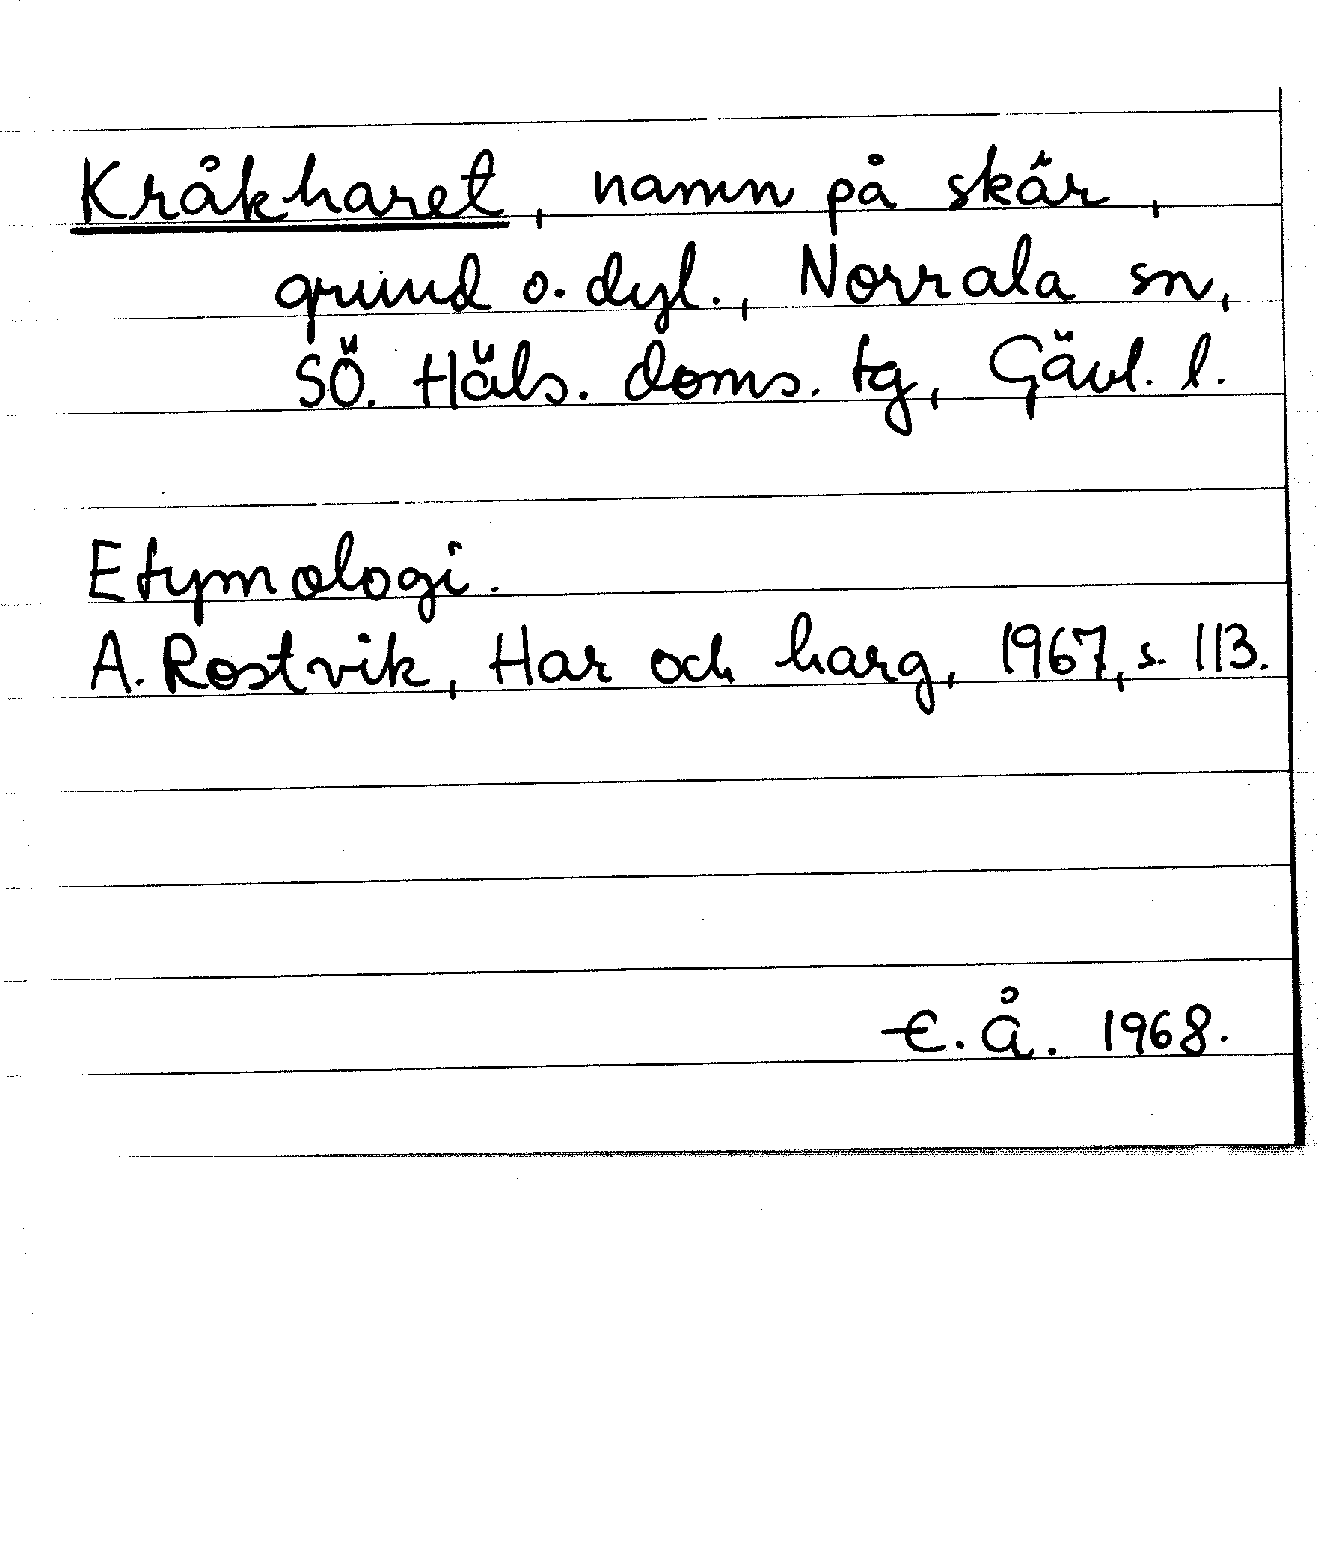 Kråkharet, namn på skär,
grund o. dyl., Norrala sn,
SÖ. Häls. doms. tg, Gävl. l.
Etymologi.
A. Rostvik, Har och harg, 1967, s. 113.
E. Å. 1968.